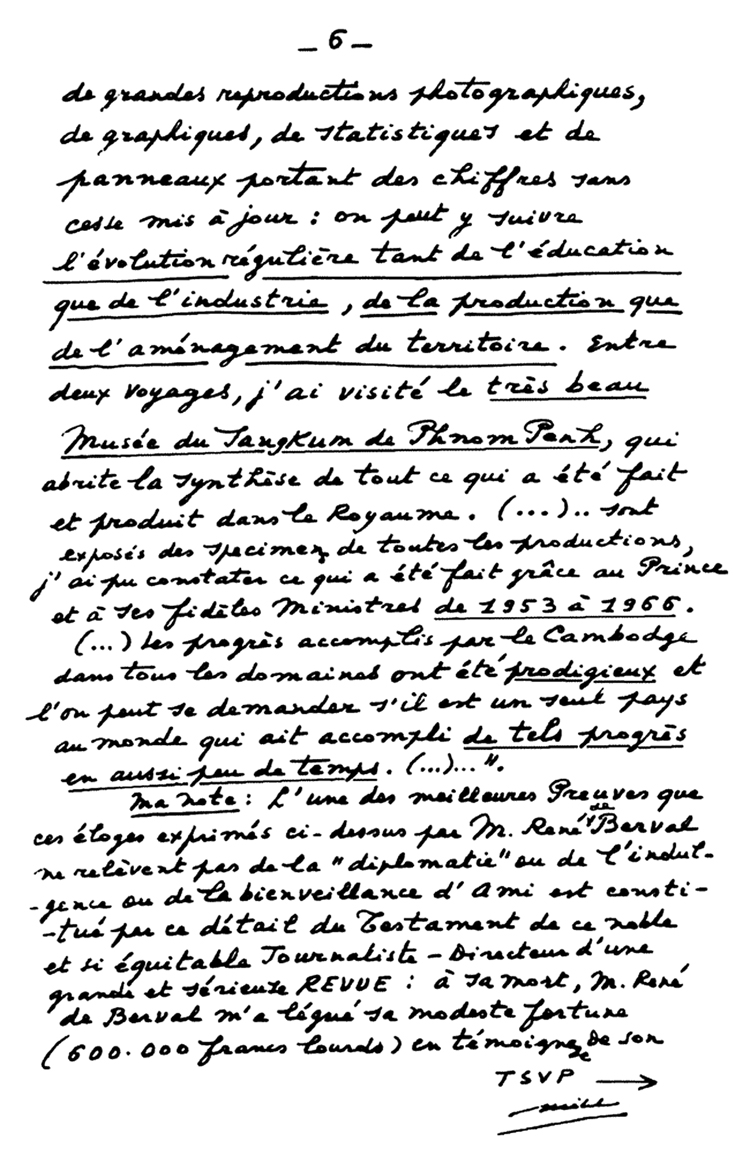 _ 6 _
de grandes reproductions photographiques,
de graphiques, de statistiques et de
panneaux portant des chiffres sans
cesse mis à jour : on peut y suivre
l'évolution régulière tant de l'éducation
que de l'industrie, de la production que
de l'aménagement du territoire. Entre
deux voyages, j'ai visité le très beau
Musée du Sangkum de Phnom Penh, qui
abrite la synthèse de tout ce qui a été fait
et produit dans le Royaume. (...).. sont
exposés des specimen de toutes les productions,
j'ai pu constater ce qui a été fait grâce au Prince
et à ses fidèles Ministres de 1953 à 1966.
(...) Les progrès accomplis par le Cambodge
dans tous les domaines ont été prodigieux et
l'on peut se demander s'il est un seul pays
au monde qui ait accompli de tels progrès
en aussi peu de temps. (...)...".
Ma note : L'une des meilleures Preuves que
ces éloges exprimés ci-dessus par M. René de Berval
ne relèvent pas de la "diplomatie" ou de l'indul-
-gence ou de la bienveillance d'Ami est consti-
-tué par ce détail du Testament de ce noble
et si équitable Journaliste - Directeur d'une
grande et sérieuse REVUE : à sa mort, M. René
de Berval m'a légué sa modeste fortune
(600.000 francs lourds) en témoignage de son
TSVP →